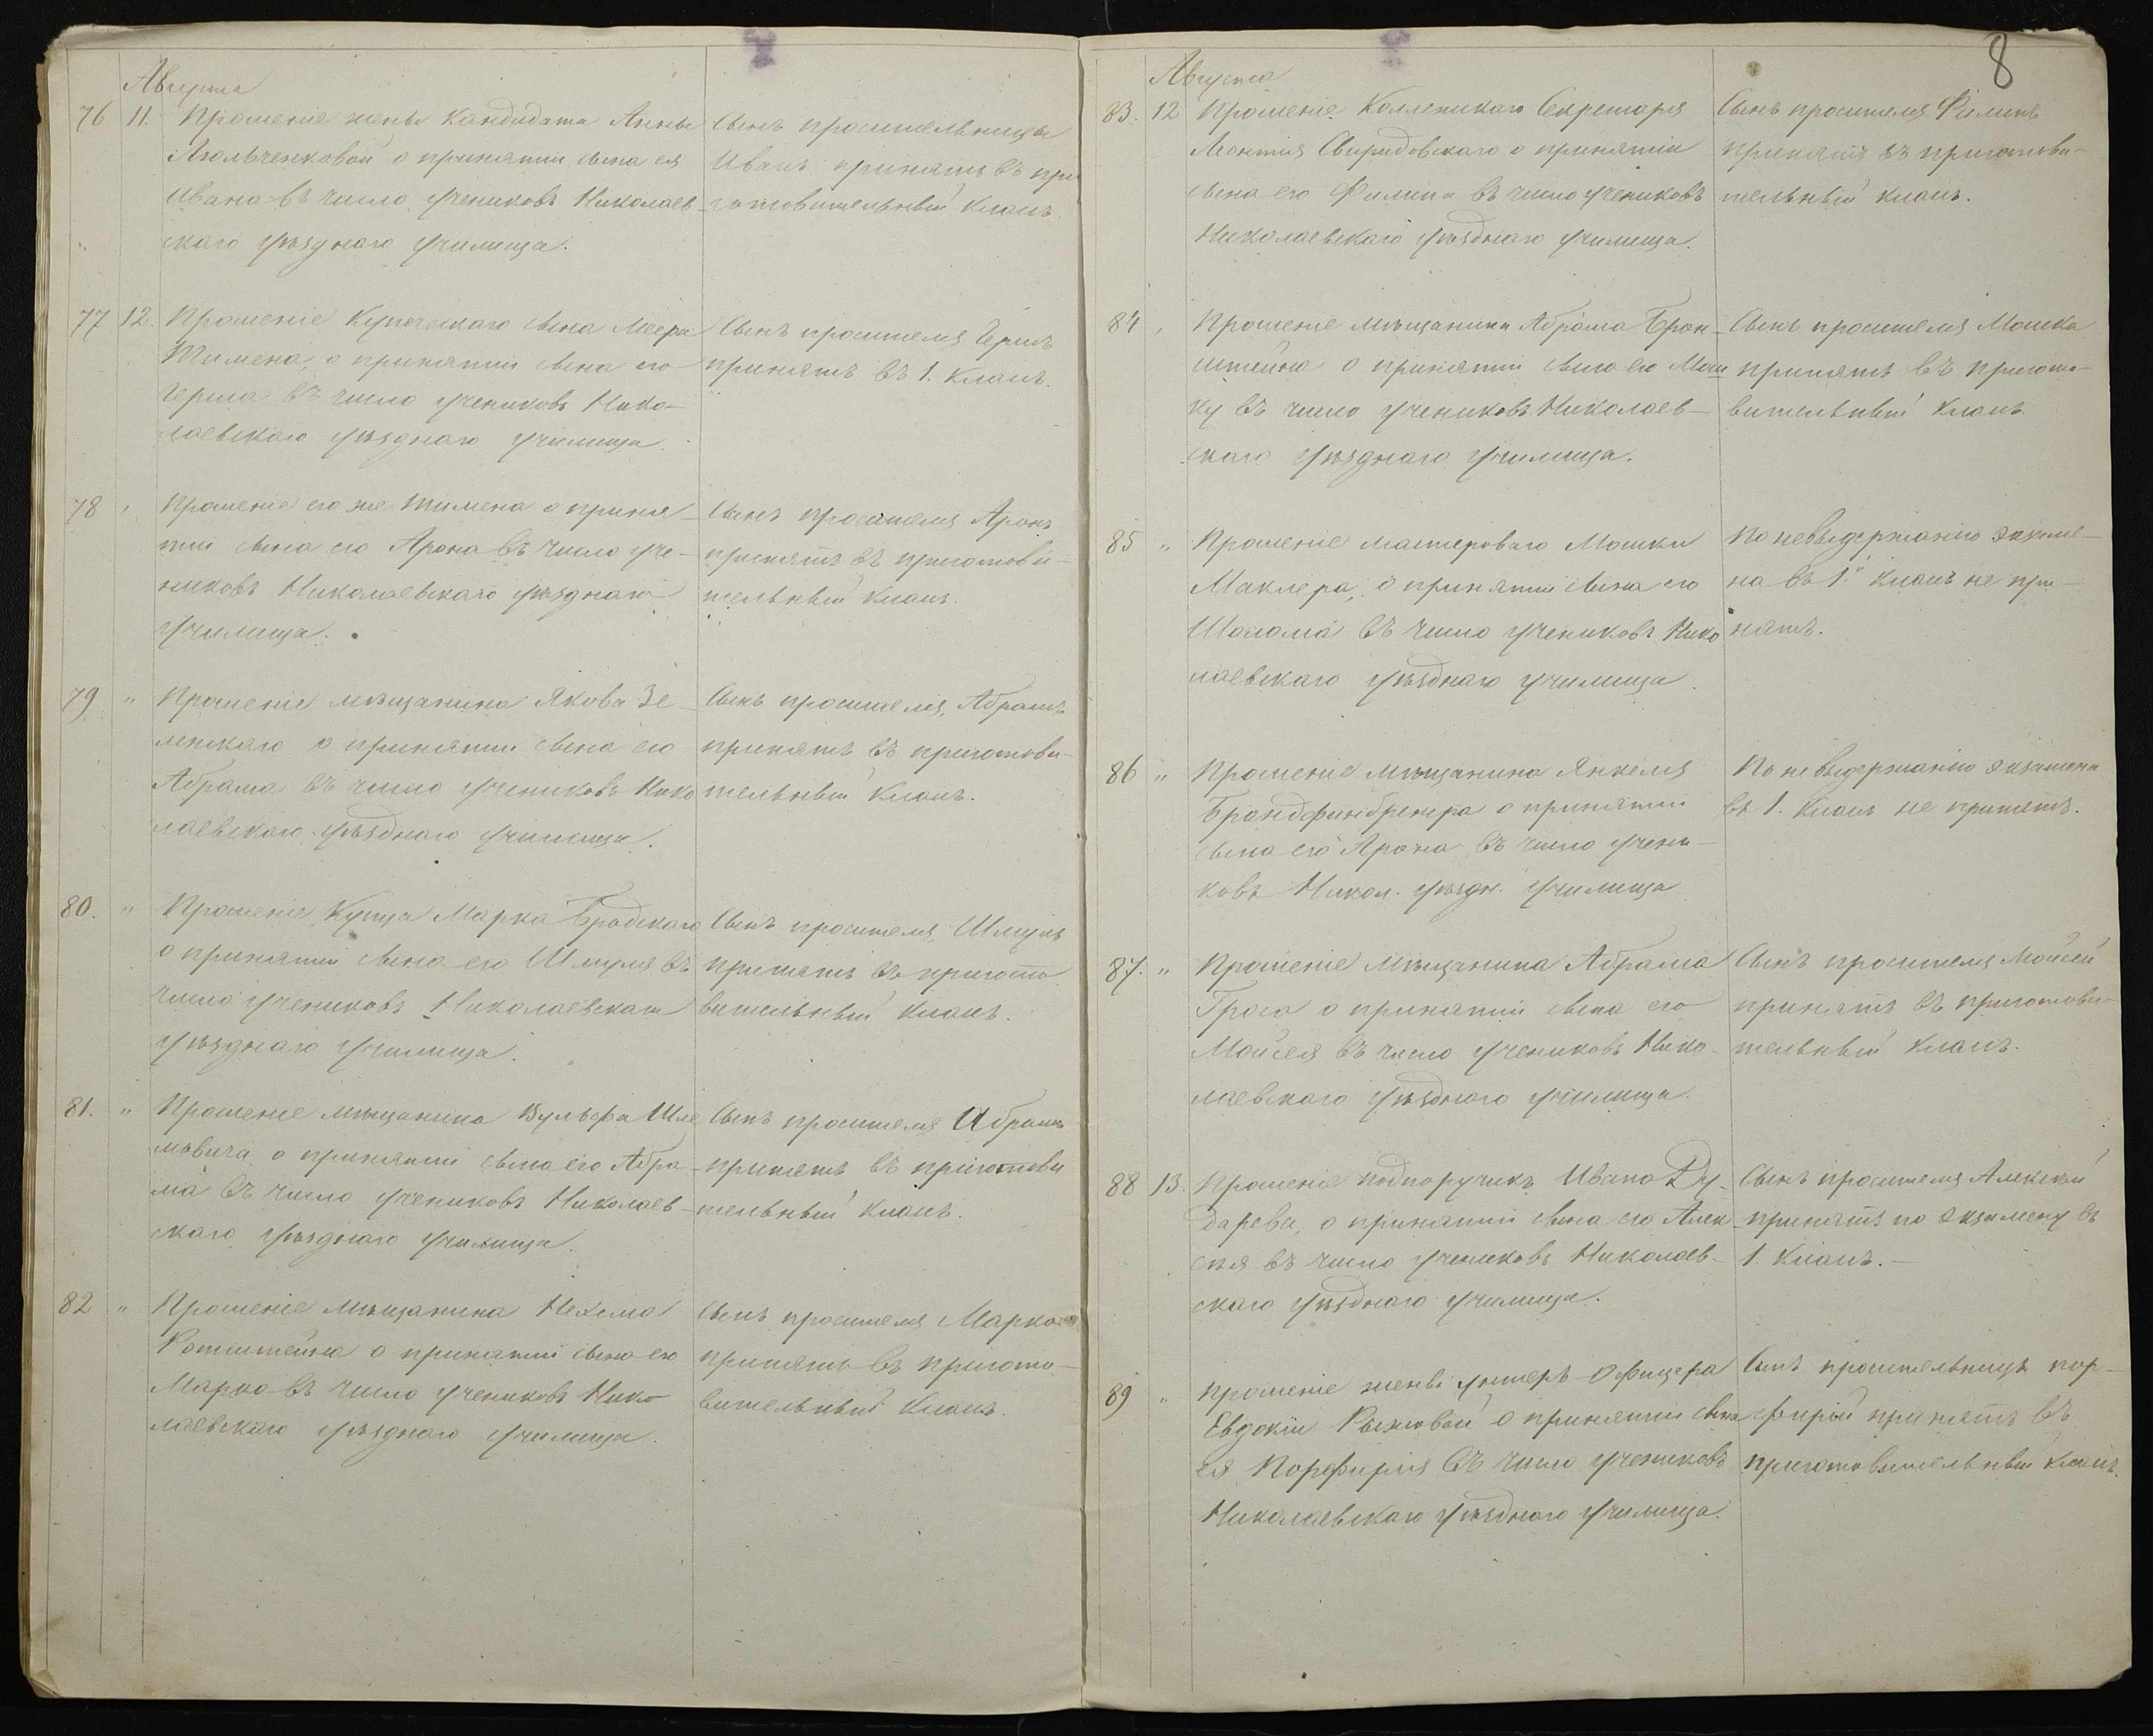 Августа
76 11. Прошеніе жены Кандидата Анны
Люльченковой о принятіи сына ея
Ивана въ число учениковъ Николаев-
скаго уѣзднаго училища.
Сынъ просительницы
Иванъ принятъ въ при
готовительный классъ.
77 12. Прошеніе Купеческаго сына Меера
Тимена, о принятіи сына его
Герша въ число учениковъ Нико-
лаевскаго уѣзднаго училища.
Сынъ просителя Гершъ
принятъ въ 1. классъ.
78 " Прошеніе его же Тимена о приня-
тіи сына его Арона въ число уче-
никовъ Николаевскаго уѣзднаго
училища.
Сынъ просителя Аронъ
принятъ въ приготови-
тельный классъ.
79 " Прошеніе мѣщанина Якова Зе-
ленскаго о принятіи сына его
Абрама въ число учениковъ Нико
лаевскаго уѣзднаго училища.
Сынъ просителя, Абрамъ
принятъ въ приготови-
тельный классъ.
80. " Прошеніе Купца Марка Бродскаго
о принятіи сына его Шмуля въ
число учениковъ Николаевскаго
уѣзднаго училища.
Сынъ просителя, Шмуль
принятъ въ пригото
вительный классъ.
81. " Прошеніе мѣщанина Вульфа Шле
мовича о принятіи сына его Абра-
ма въ число учениковъ Николаев-
скаго уѣзднаго училища.
Сынъ просителя Абрамъ
принятъ въ приготови
тельный классъ.
82 " Прошеніе мѣщанина Нехема
Ротштейна о принятіи сына его
Марко въ число учениковъ Нико
лаевскаго уѣзднаго училища.
Сынъ просителя Марко
принятъ въ пригото-
вительный классъ.
8
Августа
83. 12 Прошеніе Коллежскаго Секретаря
Леонтія Свиридовскаго о принятіи
сына его Филипа въ число учениковъ
Николаевскаго уѣзднаго училища.
Сынъ просителя Филипъ
принятъ въ приготови-
тельный классъ.
84 " Прошеніе мѣщанина Абрама Брон-
штейна о принятіи сына его Мош
ку въ число учениковъ Николаев-
скаго уѣзднаго училища.
Сынъ просителя Мошка
принятъ въ пригото-
вительный классъ.
85 " Прошеніе мастероваго Мошки
Маклера, о принятіи сына его
Шолома въ число учениковъ Нико
лаевскаго уѣзднаго училища.
По невыдержанію экзаме-
на въ 1й классъ не при-
нятъ.
86 " Прошеніе мѣщанина Янкеля
Брандфинбренера о принятіи
сына его Арона въ число учени-
ковъ Никол. уѣздн. училища
По невыдержанію экзамена
въ 1. классъ не принятъ.
87. " Прошеніе Мѣщанина Абрама
Гроса о принятіи сына его
Мойсея въ число учениковъ Нико-
лаевскаго уѣзднаго училища.
Сынъ просителя Мойсей
принятъ въ приготови-
тельный классъ.
88 13. Прошеніе подпоручикъ Ивана Ду-
дарева, о принятіи сына его Алек
сѣя въ число учениковъ Николаев-
скаго уѣзднаго училища.
Сынъ просителя Алексѣй
принятъ по экзамену въ
1. классъ.-
89 " Прошеніе жены унтеръ-офицера
Евдокіи Рыжовой о принятіи сына
ея Порфирія въ число учениковъ
Николаевскаго уѣзднаго училища.
Сынъ просительницы Пор-
фирій принятъ въ
приготовительный классъ.